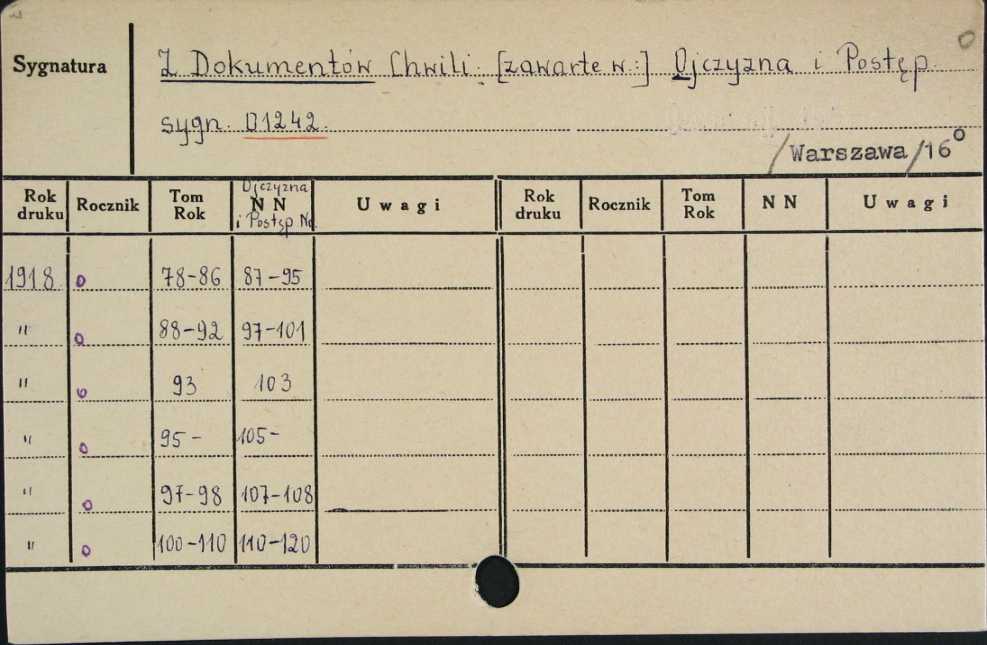 Sygnatura
Z Dokumentów Chwili. [zawarte w.:] Ojczyzna i Postęp
sygn. 01242.
/Warszawa/16°
Rok druku Rocznik Tom Rok Ojczyzna NN i Postęp Nr Uwagi Rok druku Rocznik Tom Rok NN Uwagi
1918. 0 78-86 87-95
" 0 88-92 97-101
" 0 93 103
" 0 95- 105-
" 0 97-98 107-108
" 0 100-110 110-120